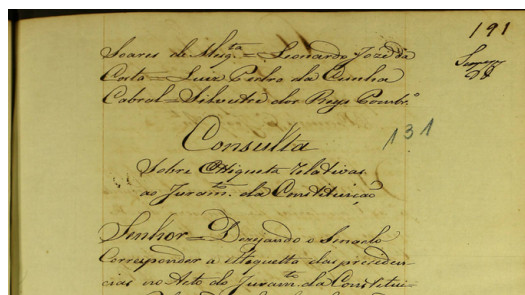 191
Soares de Mesq.ta = Leonardo Jozé da
Costa = Luiz Pedro da Cunha
Cabral = Silvestre dos Reys Pombr.º
131
Consulta
Sobre Etiqueta relativas
ao Juram.to da Constituição
Senhor = Dezejando o Senado
Corresponder a Etiquetta das preceden-
cias no Acto do Juram.to da Constitui-